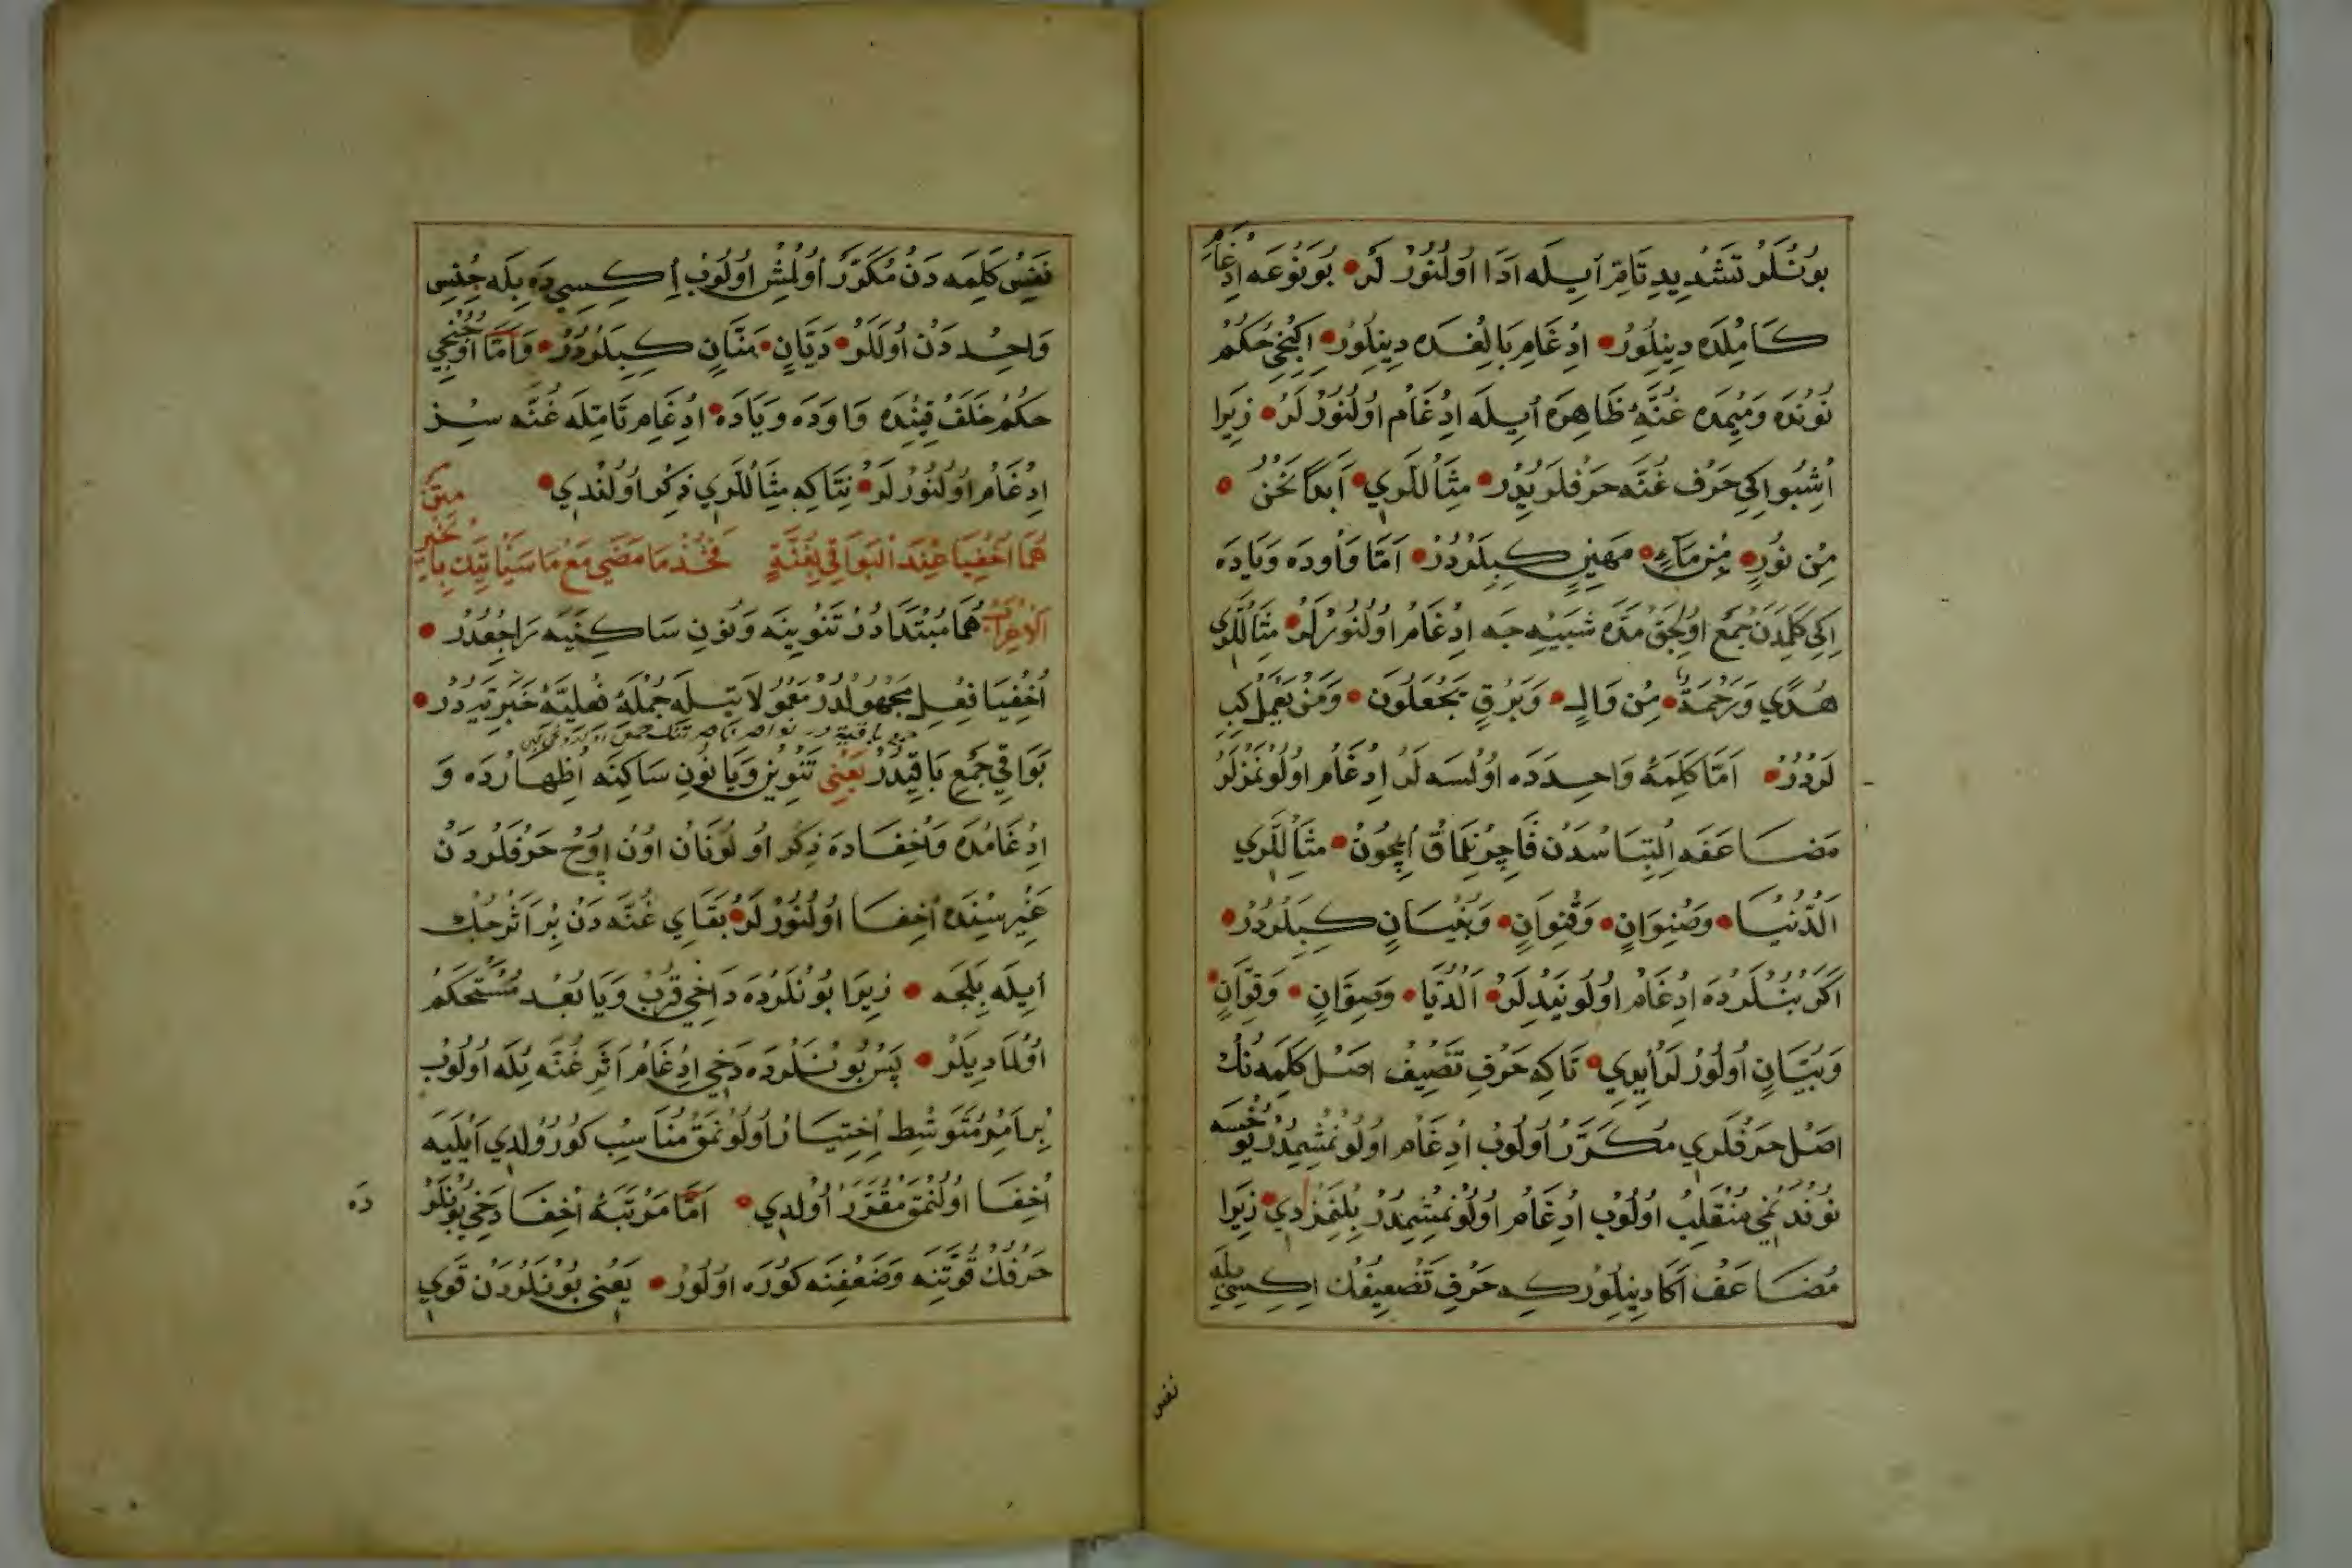 بونلر تشديد تام ايله ادا اولنور لر بو نوعه ادغام
كامله دينلور ادغام بالغده دينلور اكنجى حكم
نونده وميمده غنّه ظاهره ايله ادغام اولنور لر زيرا
اشبو اكى حرف غنه حرفلريدر مثاللرى ابدا نحن
من نور من ماء مهين كبيلردر اما واوده ويا ده
اكى كلمه دن جمع اولجق مده شبيه جه ادغام اولنور لر مثاللرى
هدى ورحمة من وال وبرق يجعلون ومن يعمل كبى
لردر اما كلمهٔ واحده ده اولسه لر ادغام اولونمزلر
مضاعفه التباسدن قاچنماق ايچون مثاللرى
الدنيا وصنوان وقنوان وبنيان كبيلردر
اكر بنلرده ادغام اولونيدلر الديا وصوان وقوان
وبيان اولور لرايدى تاكه حرف تضيف اصل كلمه نك
اصل حرفلرى مكرر اولوب ادغام اولونمشيدر يوخسه
نوندنمى منقلب اولوب ادغام اولونمشيمدر بلنمزدى زيرا
مضاعف اكا دينلور كه حرف تضعيفك اكيسى بله
نفس
نفس كلمه دن مكرر اولمش اولوب اكيسى ده بله جنس
واحد دن اوللر ديان منان كبيلردر واما اوچنجى
حكم خلف قتنده واوده ويا ده ادغام تامله غنه سز
ادغام اولنور لر نتاكه مثاللرى ذكر اولندى متن
هما اخفيا عند البواقى بغنة فخذ ما مضى مع ما سياتيك باخبر
الاعراب هما مبتدادر تنوينه ونون ساكنيه راجعدر
اخفيا فعل مجهولدر معمولاتيله جملهٔ فعليه خبريدر
بواقى جمع باقيدر يعنى تنوين ويا نون ساكنه اظهارده و
ادغامده واخفاده ذكر اولونان اون اوچ حرفلردن
غيرسنده اخفا اولنور لر بقاى غنه دن بر اثر جك
ايله بلجه زيرا بونلرده داخى قرب ويا بعد مستحكم
اولماديلر پس بونلرده دخى ادغام اثر غنه بله اولوب
بر امر متوسط اختيار اولونمق مناسب كورولدى ايليه
اخفا اولنمق مقرر اولدى اما مرتبهٔ اخفا دخى بونلر
ده
حرفك قوتنه وضعفنه كوره اولور يعنى بونلردن قوى